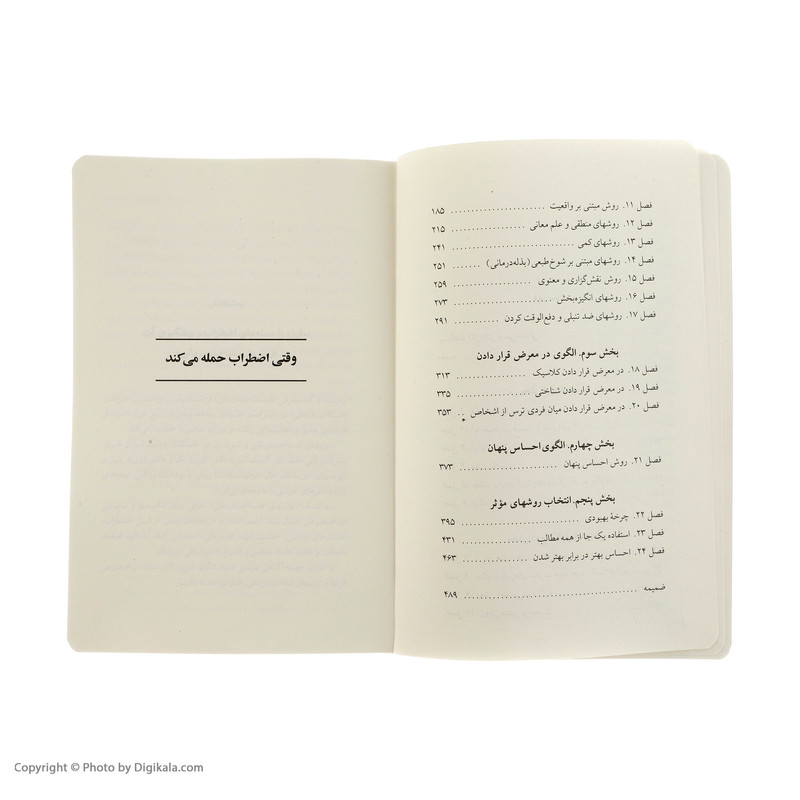 فصل ۱۱. روش مبتنی بر واقعیت ........................ ۱۸۵
فصل ۱۲. روشهای منطقی و علم معانی .................... ۲۱۵
فصل ۱۳. روشهای کمی ................................ ۲۴۱
فصل ۱۴. روشهای مبتنی بر شوخ‌طبعی (بذله‌درمانی) ....... ۲۵۱
فصل ۱۵. روش نقش‌گزاری و معنوی .................... ۲۵۹
فصل ۱۶. روشهای انگیزه‌بخش ......................... ۲۷۳
فصل ۱۷. روشهای ضد تنبلی و دفع‌الوقت کردن ............ ۲۹۱
بخش سوم. الگوی در معرض قرار دادن
فصل ۱۸. در معرض قرار دادن کلاسیک .................. ۳۱۳
فصل ۱۹. در معرض قرار دادن شناختی .................. ۳۳۵
فصل ۲۰. در معرض قرار دادن میان فردی ترس از اشخاص .. ۳۵۳
بخش چهارم. الگوی احساس پنهان
فصل ۲۱. روش احساس پنهان ......................... ۳۷۳
بخش پنجم. انتخاب روشهای مؤثر
فصل ۲۲. چرخهٔ بهبودی ............................. ۳۹۵
فصل ۲۳. استفاده یک جا از همه مطالب ................. ۴۳۱
فصل ۲۴. احساس بهتر در برابر بهتر شدن ................ ۴۶۳
ضمیمه .......................................... ۴۸۹
وقتی اضطراب حمله می‌کند
Copyright © Photo by Digikala.com